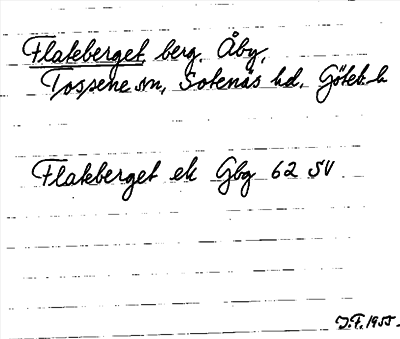 Flakeberget, berg, Åby,
Tossene sn, Sotenäs hd, Göteb. l.
Flakberget ek Gbg 62 SV
J.F. 1955.